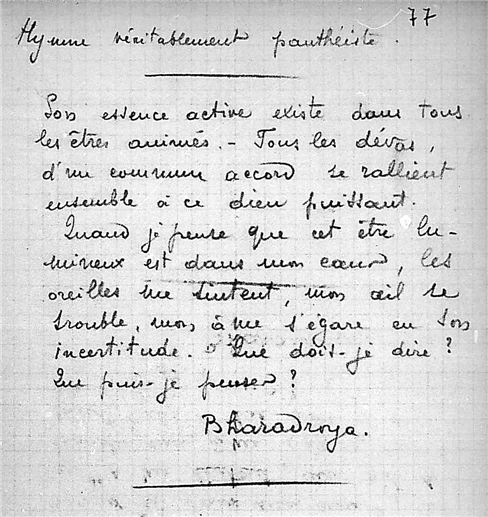 77
Hymne véritablement panthéiste.
Son essence active existe dans tous
les êtres animés. - Tous les dévas,
d'un commun accord se rallient
ensemble à ce dieu puissant.
Quand je pense que cet être lu-
mineux est dans mon cœur, les
oreilles me tintent, mon œil se
trouble, mon âme s'égare en son
incertitude. Que dois-je dire ?
Que puis-je penser ?
Bharadroya.